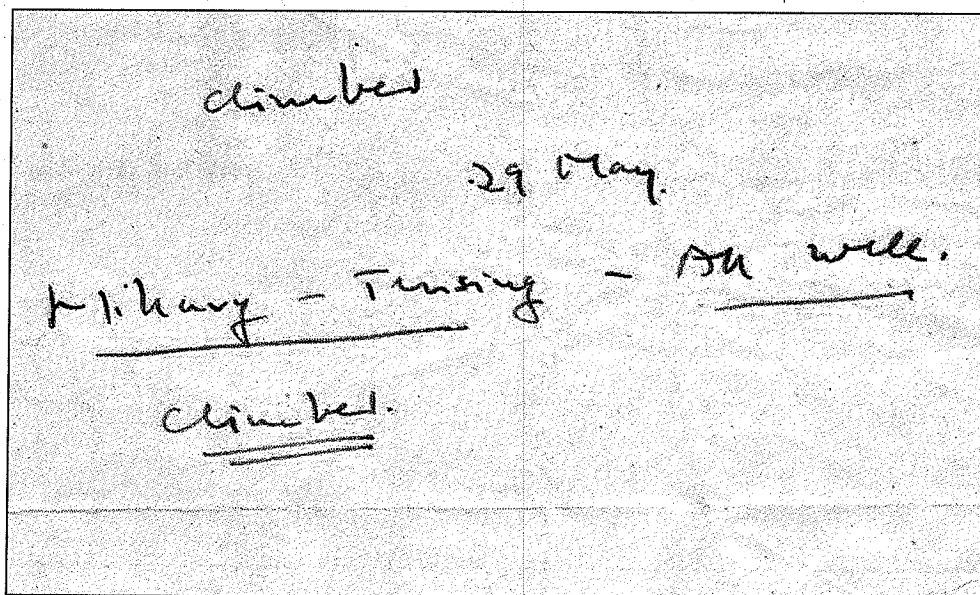 climbed
29 May.
Hillary - Tensing - All well.
climbed.